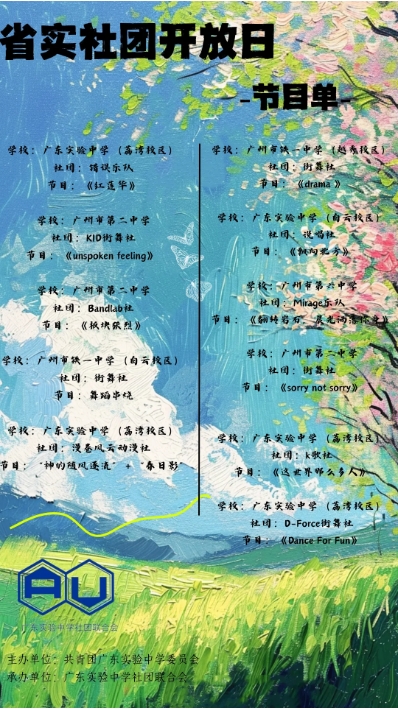 省实社团开放日
-节目单-
学校：广东实验中学（荔湾校区）
社团：错误乐队
节目：《红莲华》
学校：广州市第二中学
社团：KID街舞社
节目：《unspoken feeling》
学校：广州市第二中学
社团：Bandlab社
节目：《板块依烈》
学校：广州市铁一中学（白云校区）
社团：街舞社
节目：舞蹈串烧
学校：广东实验中学（荔湾校区）
社团：漫卷风云动漫社
节目：“神的随风逐流”+“春日影”
学校：广州市铁一中学（越秀校区）
社团：街舞社
节目：《drama》
学校：广东实验中学（白云校区）
社团：说唱社
节目：《飘向北方》
学校：广州市第六中学
社团：Mirage乐队
节目：《翻转岩石，晨光洒落你身》
学校：广州市第二中学
社团：街舞社
节目：《sorry not sorry》
学校：广东实验中学（荔湾校区）
社团：k歌社
节目：《这世界那么多人》
学校：广东实验中学（荔湾校区）
社团：D-Force街舞社
节目：《Dance For Fun》
AU
广东实验中学社团联合会
主办单位：共青团广东实验中学委员会
承办单位：广东实验中学社团联合会